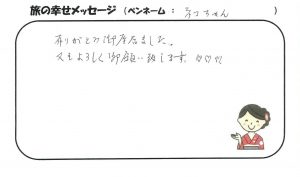 旅の幸せメッセージ（ペンネーム：ネコちゃん）
ありがとう御座居ました。
又もよろしく御願い致します。♡♡♡